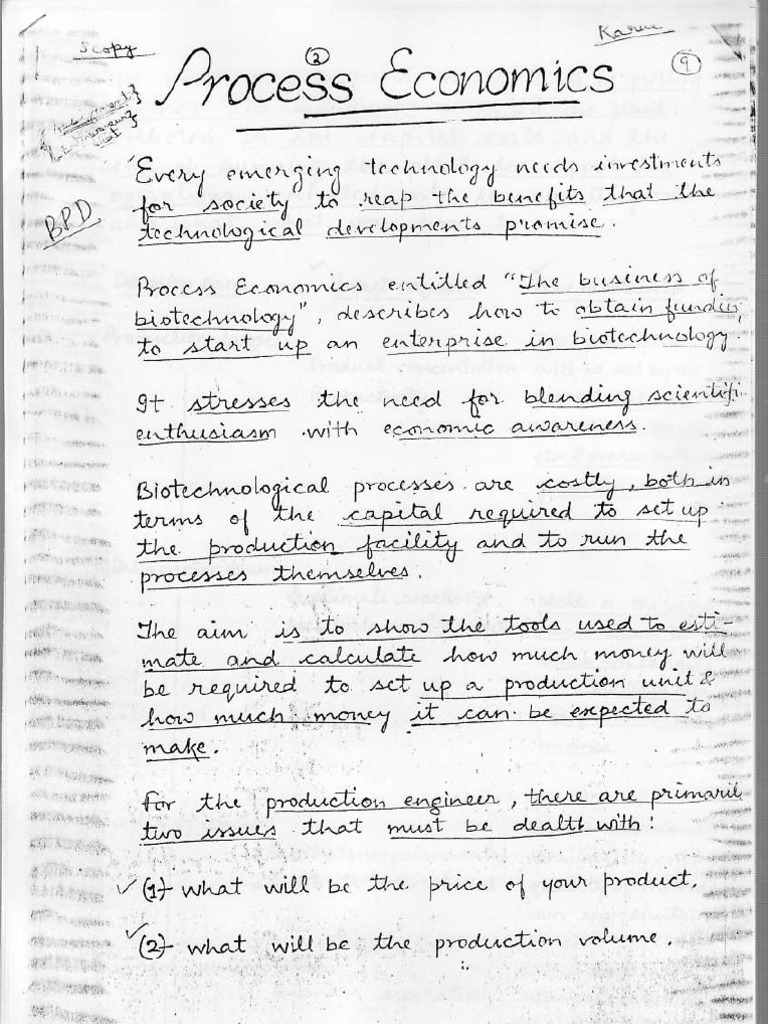 5 copy
Karu
②
⑨
Process Economics
BPD
Every emerging technology needs investments
for society to reap the benefits that the
technological developments promise.
Process Economics entitled "The business of
biotechnology", describes how to obtain fundin
to start up an enterprise in biotechnology.
It stresses the need for blending scientifi
enthusiasm with economic awareness.
Biotechnological processes are costly, both in
terms of the capital required to set up
the production facility and to run the
processes themselves.
The aim is to show the tools used to esti-
mate and calculate how much money will
be required to set up a production unit &
how much money it can be expected to
make.
For the production engineer, there are primaril
two issues that must be dealtt with:
(1) what will be the price of your product.
(2) what will be the production volume.